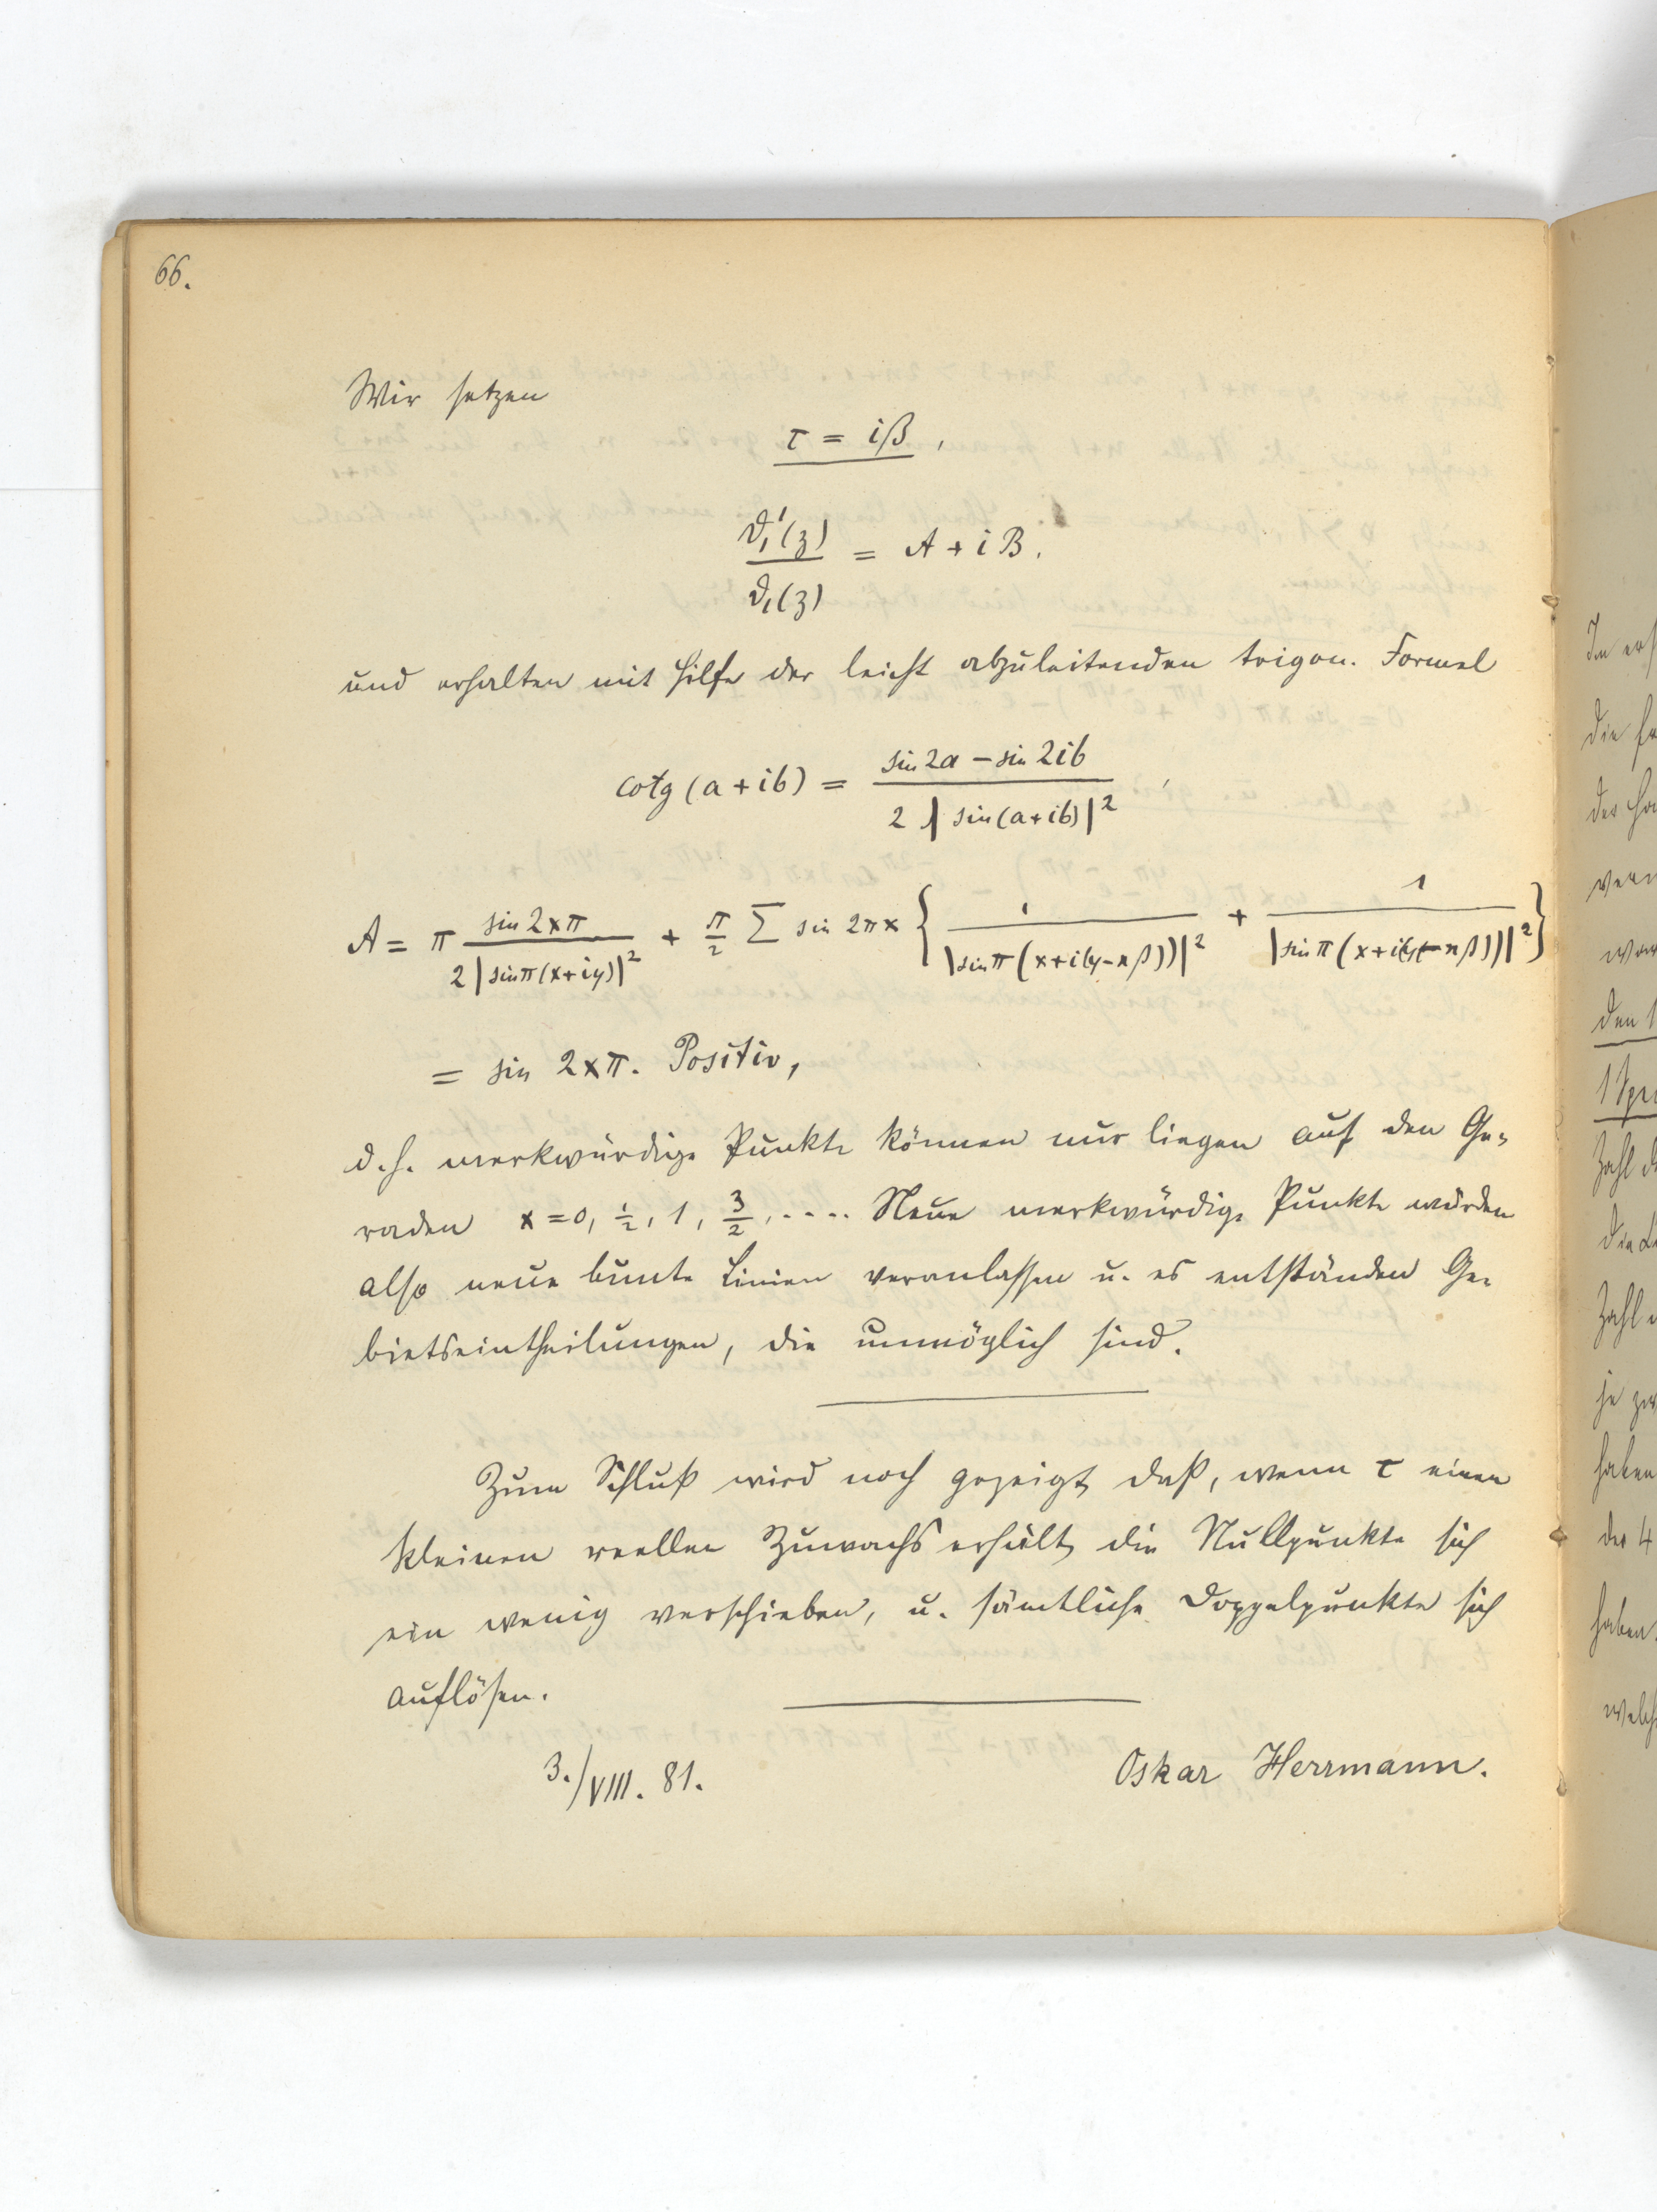 66.
Wir setzen
τ = iβ,
ϑ₁'(z) / ϑ₁(z) = A + iB.
und erhalten mit Hilfe der leicht abzuleitenden trigon. Formel
cotg (a + ib) = (sin 2a − sin 2ib) / (2 |sin(a+ib)|²),
A = π sin 2xπ / (2 |sin π(x+iy)|²) + π/2 Σ sin 2πx { 1 / |sin π(x+i(y−nβ))|² + 1 / |sin π(x+i(y+nβ))|² }
= sin 2xπ. Positiv,
d.h. merkwürdige Punkte können nur liegen auf den Ge-
raden x = 0, 1/2, 1, 3/2, .... Neue merkwürdige Punkte würden
also neue bunte Linien veranlassen u. es entständen Ge-
bietseintheilungen, die unmöglich sind.
Zum Schluß wird noch gezeigt, daß, wenn τ einen
kleinen reellen Zuwachs erhält, die Nullpunkte sich
ein wenig verschieben, u. sämtliche Doppelpunkte sich
auflösen.
3./VIII. 81. Oskar Herrmann.